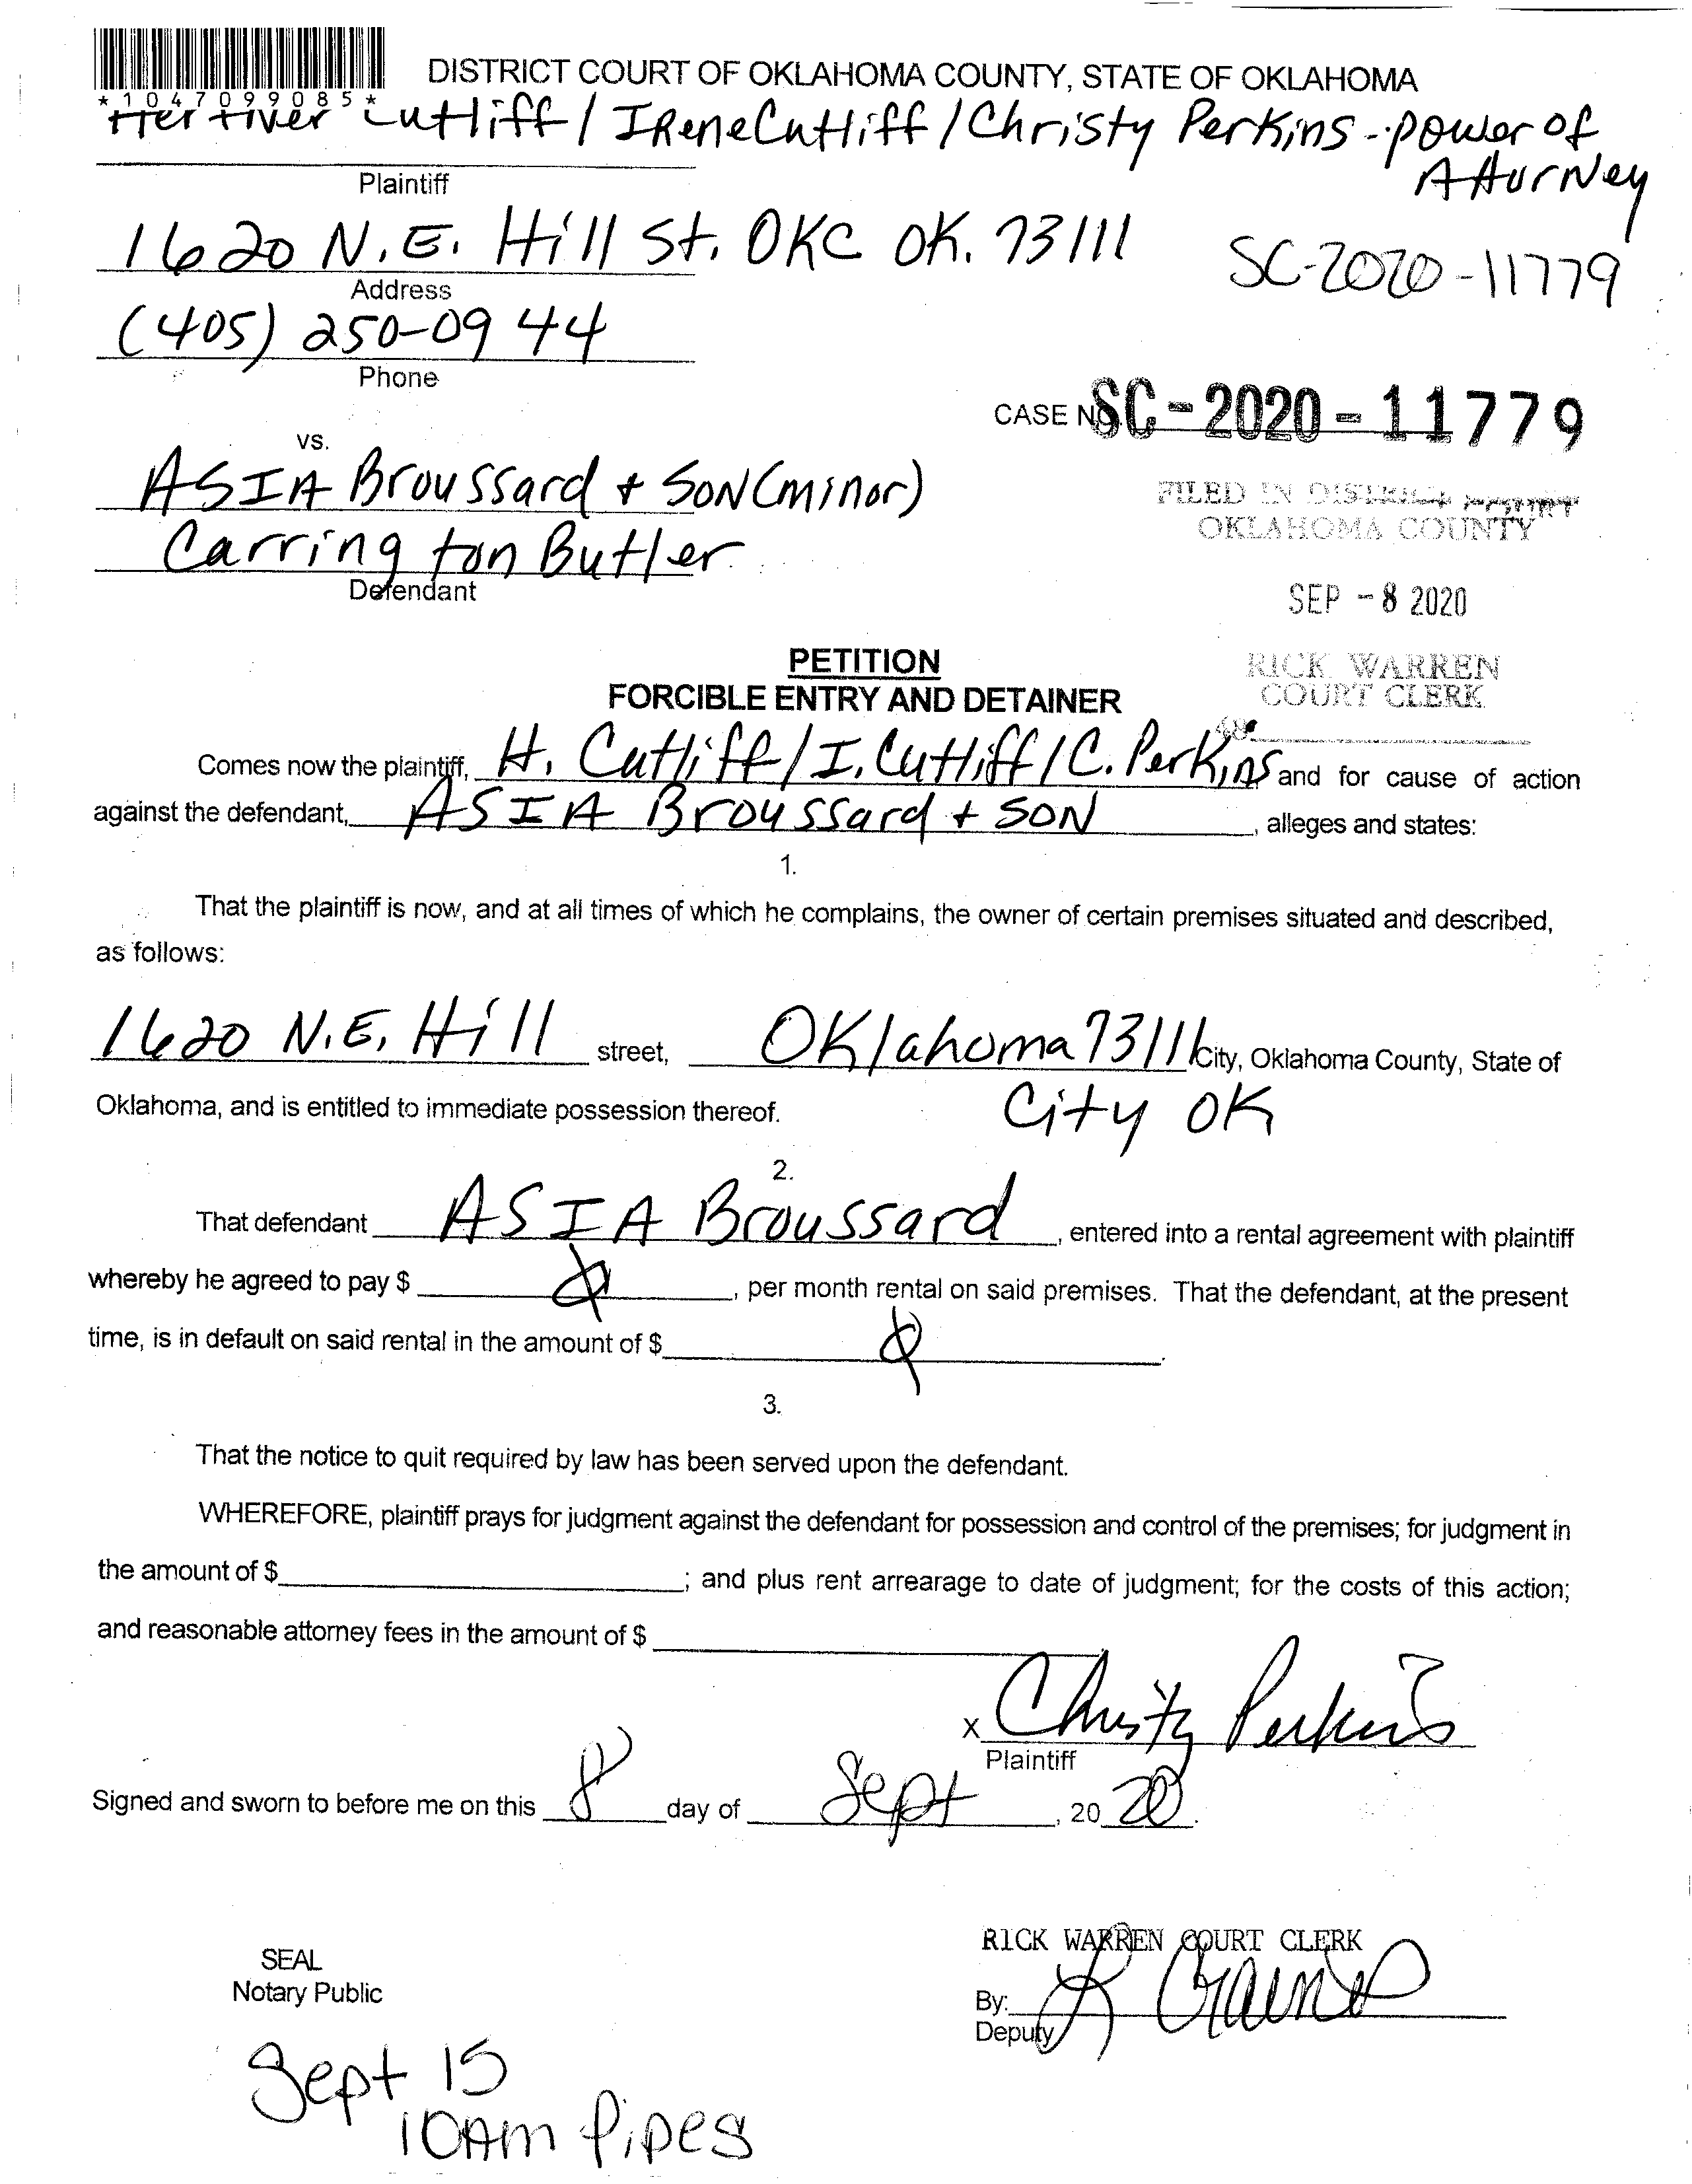 DISTRICT COURT OF OKLAHOMA COUNTY, STATE OF OKLAHOMA
*1047099085*
Cutliff / IReneCutliff / Christy Perkins - power of
Attorney
Plaintiff
1620 N.E. Hill St. OKC OK. 73111
SC-2020-11779
Address
(405) 250-0944
Phone
CASE NO. SC-2020-11779
vs.
ASIA Broussard + SON (minor)
FILED IN DISTRICT COURT
OKLAHOMA COUNTY
Carrington Butler
Defendant
SEP -8 2020
PETITION
RICK WARREN
FORCIBLE ENTRY AND DETAINER
COURT CLERK
Comes now the plaintiff, H. Cutliff / I. Cutliff / C. Perkins and for cause of action
against the defendant, ASIA Broussard + SON, alleges and states:
1.
That the plaintiff is now, and at all times of which he complains, the owner of certain premises situated and described,
as follows:
1620 N.E. Hill street, Oklahoma 73111 City, Oklahoma County, State of
City OK
Oklahoma, and is entitled to immediate possession thereof.
2.
That defendant ASIA Broussard, entered into a rental agreement with plaintiff
whereby he agreed to pay $ , per month rental on said premises. That the defendant, at the present
time, is in default on said rental in the amount of $ .
3.
That the notice to quit required by law has been served upon the defendant.
WHEREFORE, plaintiff prays for judgment against the defendant for possession and control of the premises; for judgment in
the amount of $ ; and plus rent arrearage to date of judgment; for the costs of this action;
and reasonable attorney fees in the amount of $
x Christy Perkins
Plaintiff
Signed and sworn to before me on this 8 day of Sept, 20 20.
RICK WARREN COURT CLERK
SEAL
Notary Public
By:
Deputy
Sept 15
10AM Pipes